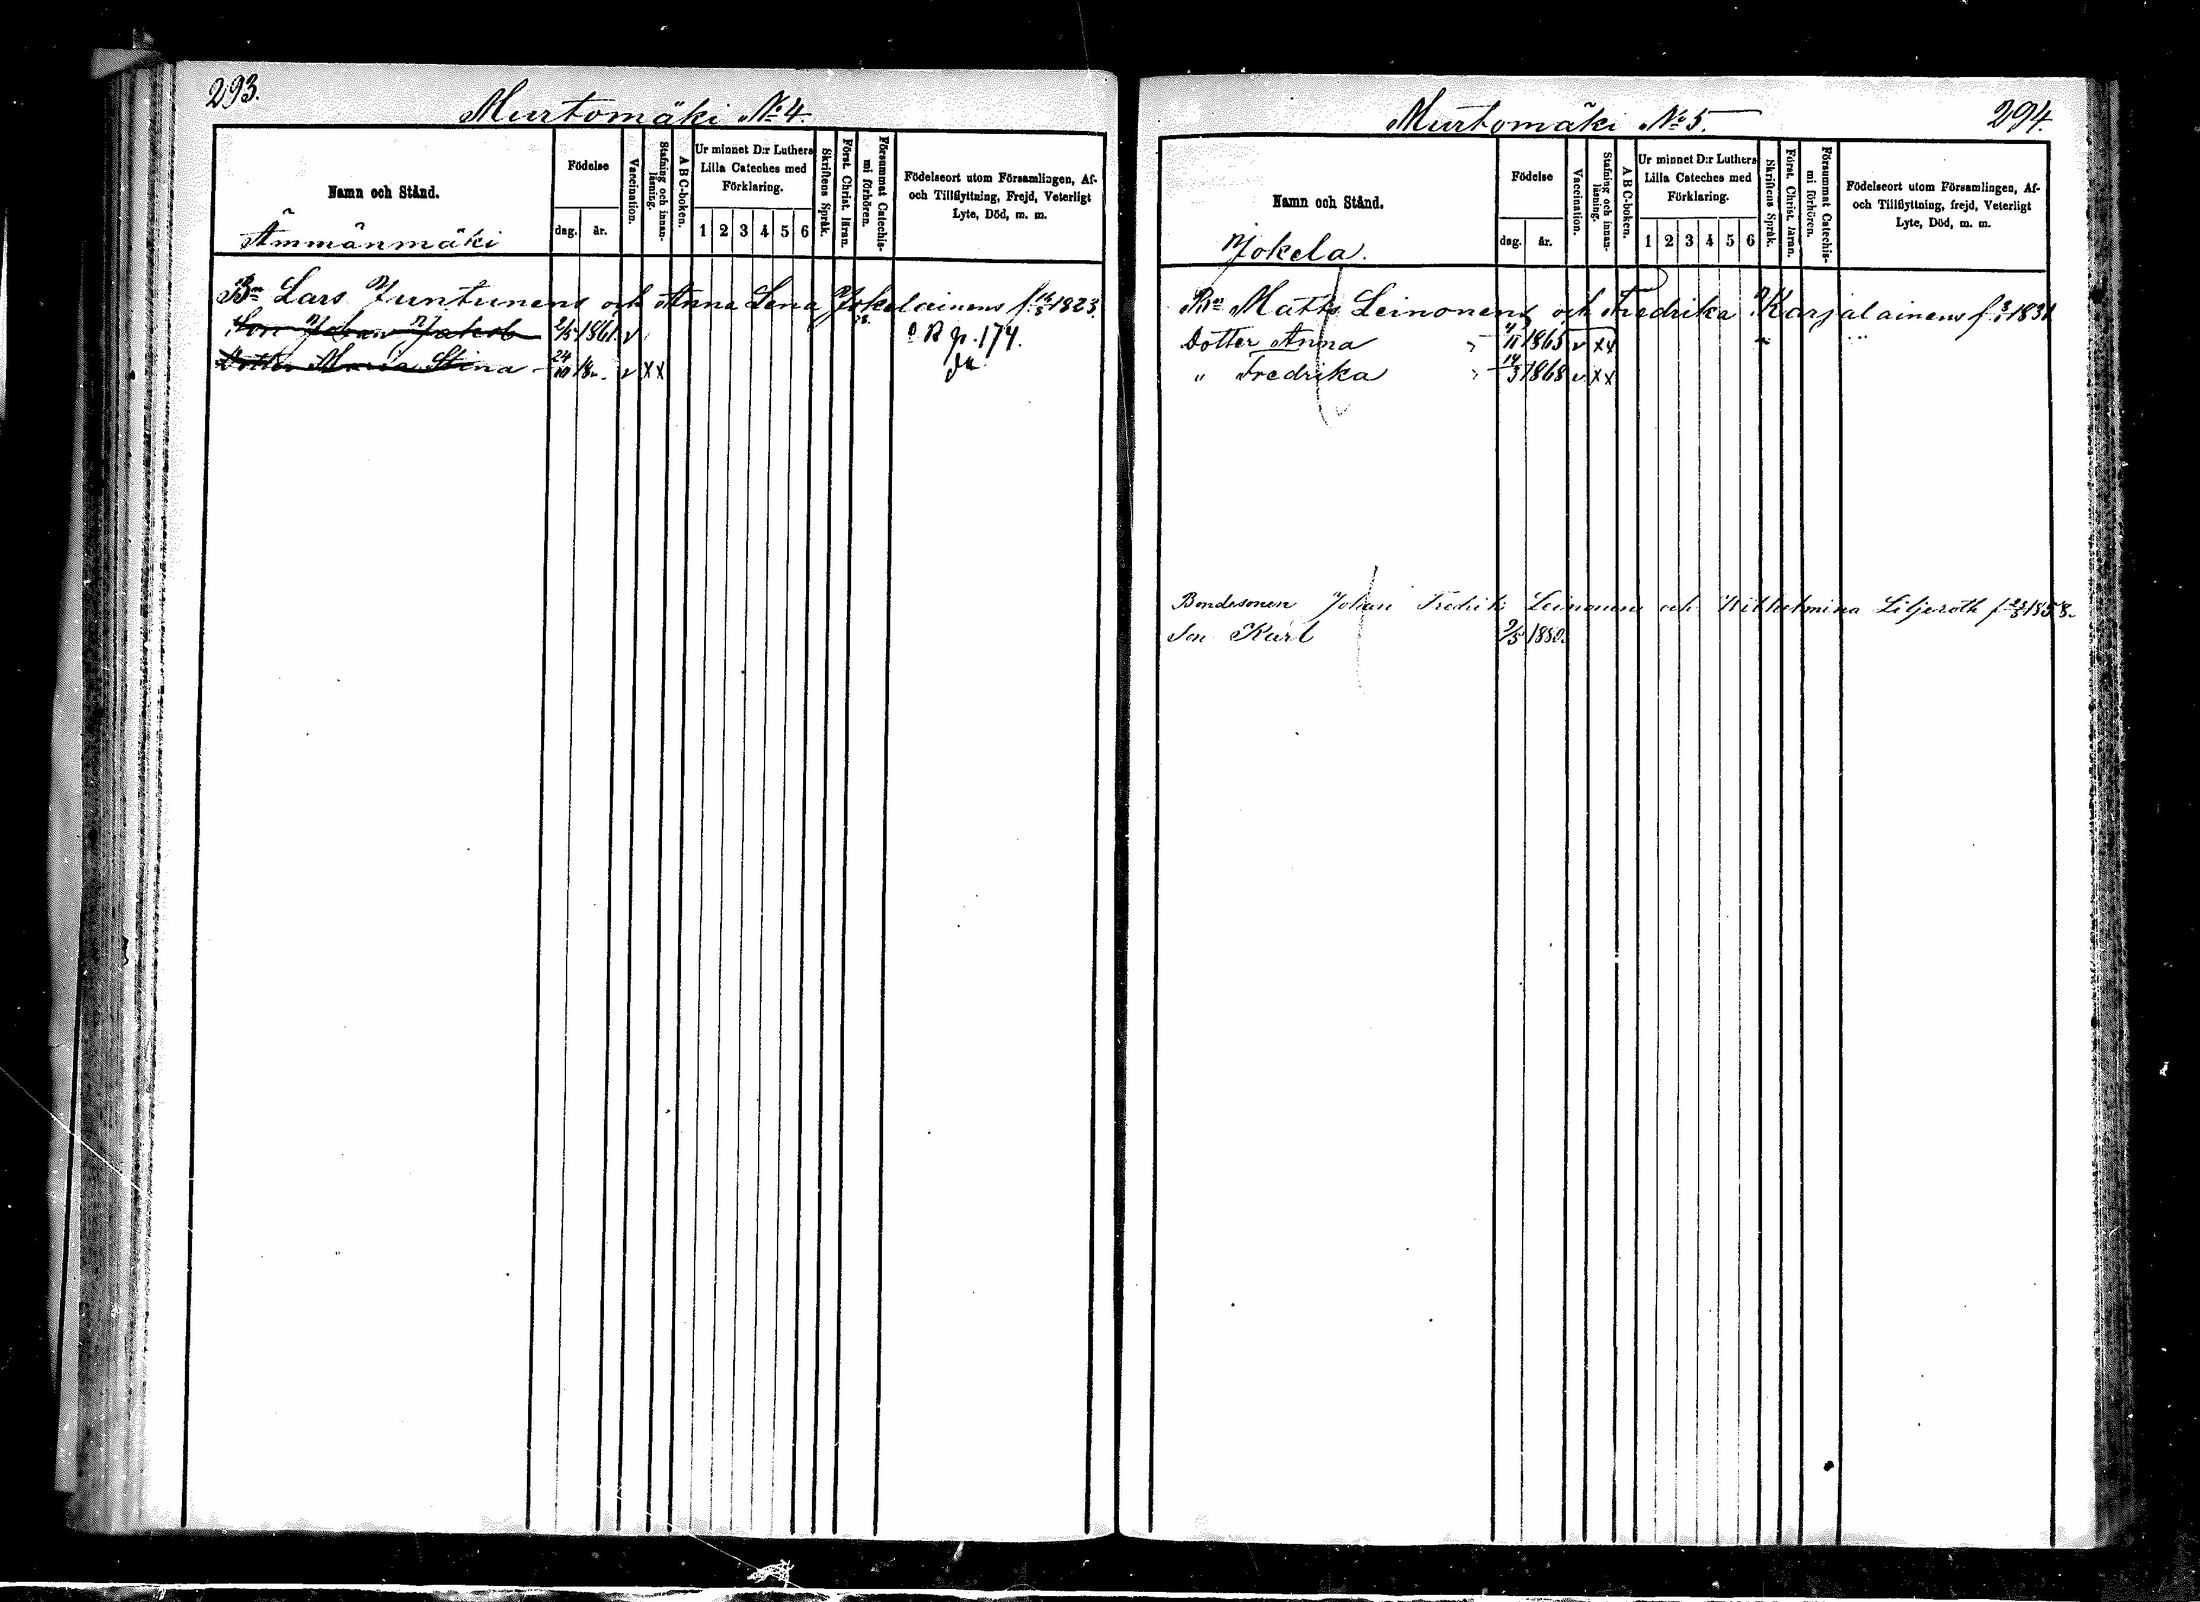 293.
Murtomäki No 4.
Namn och Stånd.
Ämmänmäki
Födelse
dag. år.
Vaccination.
Stafning och innanläsning.
A B C-boken.
Ur minnet D:r Luthers Lilla Cateches med Förklaring.
1 2 3 4 5 6
Skriftens Språk.
Först. Christ. läran.
Försummat Catechismi förhören.
Födelseort utom Församlingen, Af- och Tillflyttning, Frejd, Veterligt Lyte, Död, m. m.
Bn Lars Juntunens och Anna Lena Jokelainens f. 1823.
Son Johan Jakob 2/5 1861. v R p. 174.
Dotter Maria Stina 24/10 18 v x x
294.
Murtomäki No 5.
Namn och Stånd.
Jokela.
Födelse
dag. år.
Vaccination.
Stafning och innanläsning.
A B C-boken.
Ur minnet D:r Luthers Lilla Cateches med Förklaring.
1 2 3 4 5 6
Skriftens Språk.
Först. Christ. läran.
Försummat Catechismi förhören.
Födelseort utom Församlingen, Af- och Tillflyttning, frejd, Veterligt Lyte, Död, m. m.
Bn Matts Leinonens och Fredrika Karjalainens f. 1831.
Dotter Anna 11 1865 v x x
" Fredrika 14/3 1868 v x x
Bondesonen Johan Fredrik Leinonens och Wilhelmina Liljeroth f. 1858.
Son Karl 2/5 1880.